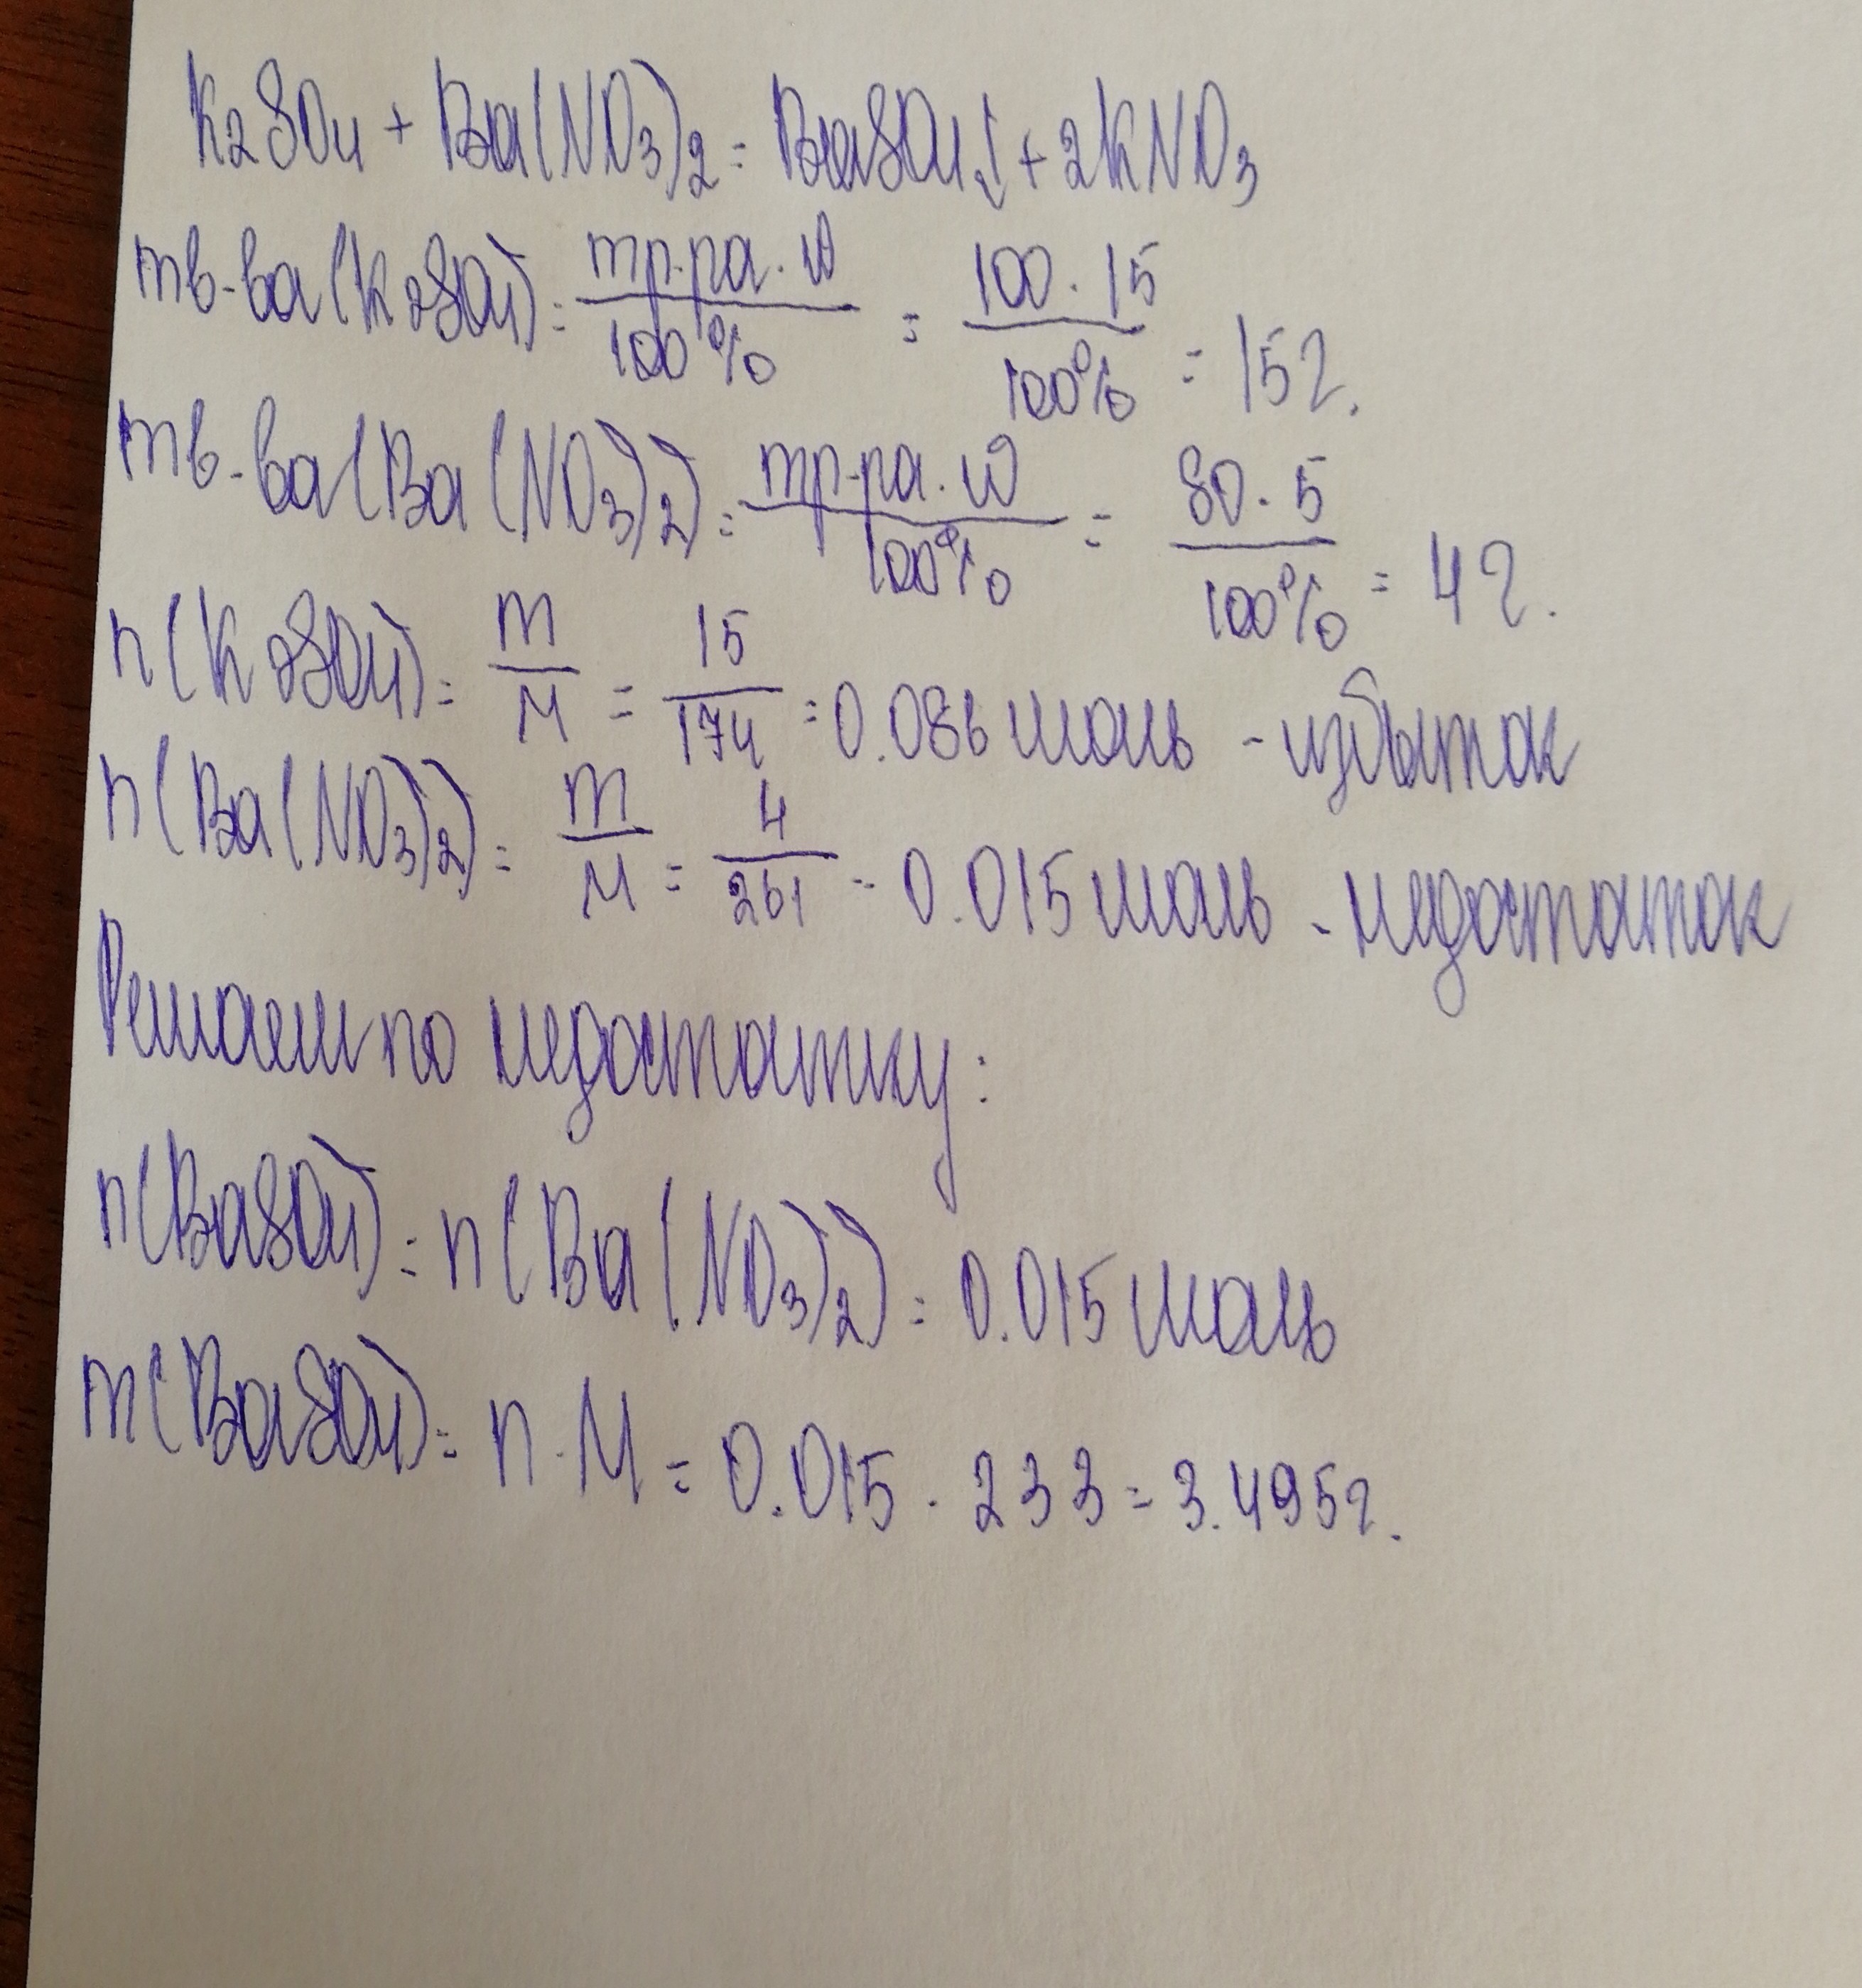 K2SO4 + Ba(NO3)2 = BaSO4↓ + 2KNO3
mв-ва(K2SO4) = mр-ра · ω / 100% = 100 · 15 / 100% = 15г.
mв-ва(Ba(NO3)2) = mр-ра · ω / 100% = 80 · 5 / 100% = 4г.
n(K2SO4) = m / M = 15 / 174 = 0.086 моль - избыток
n(Ba(NO3)2) = m / M = 4 / 261 = 0.015 моль - недостаток
Решаем по недостатку:
n(BaSO4) = n(Ba(NO3)2) = 0.015 моль
m(BaSO4) = n · M = 0.015 · 233 = 3.495г.